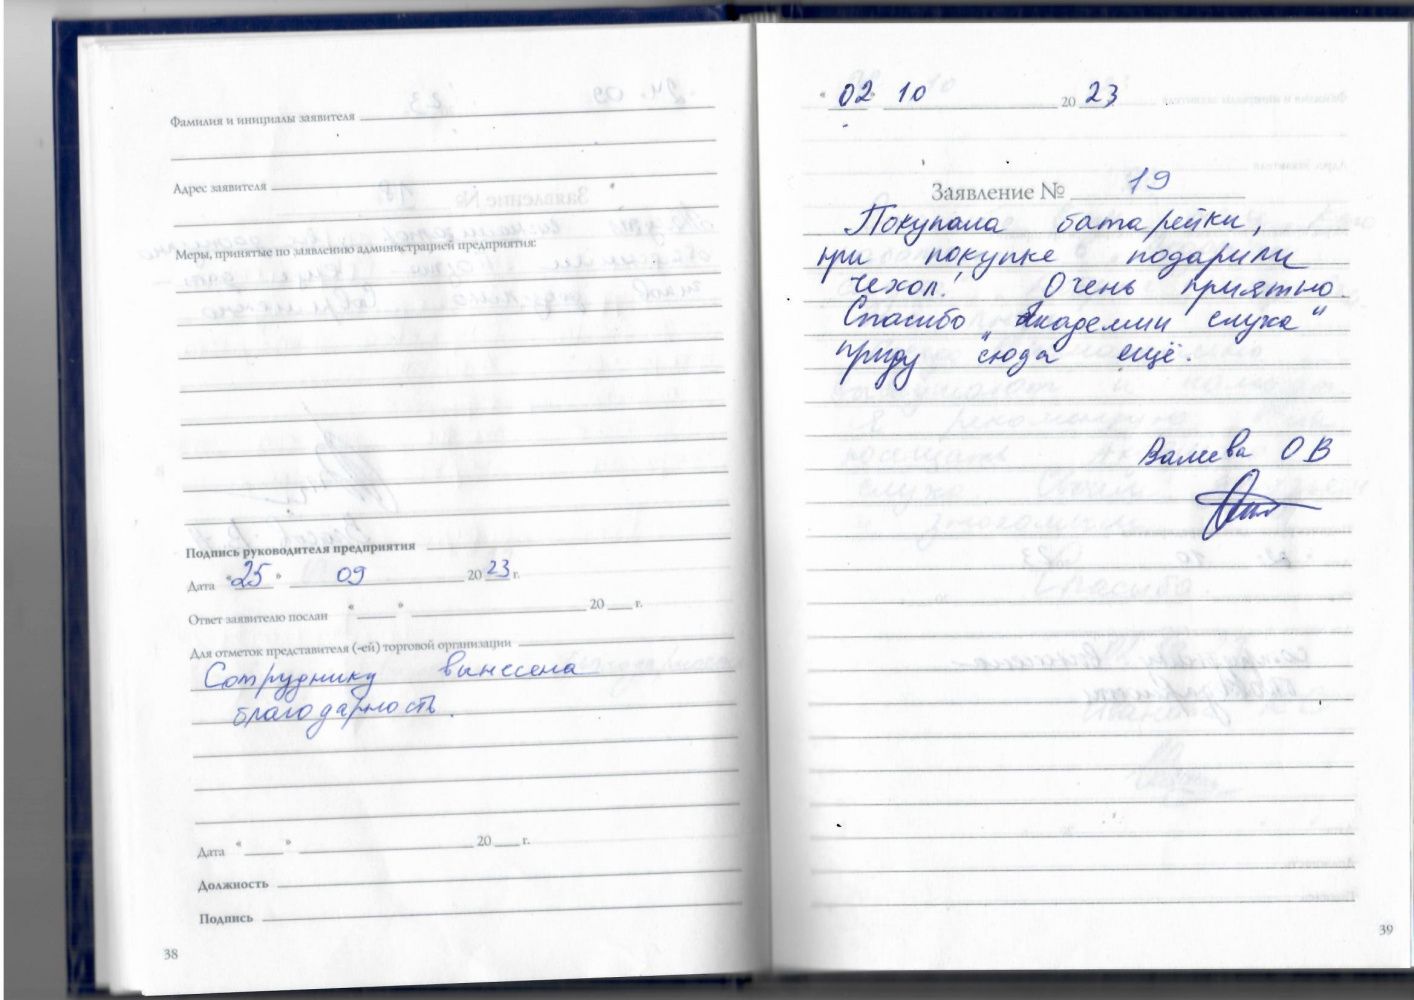 Фамилия и инициалы заявителя
Адрес заявителя
Меры, принятые по заявлению администрацией предприятия:
Подпись руководителя предприятия
Дата "25" 09 2023 г.
Ответ заявителю послан " " 20 г.
Для отметок представителя (-ей) торговой организации
Сотруднику вынесена
благодарность.
Дата " " 20 г.
Должность
Подпись
38
"02" 10 2023
Заявление № 19
Покупала батарейки,
при покупке подарили
чехол! Очень приятно.
Спасибо "Академии слуха"
приду сюда ещё.
Валиева О В
39